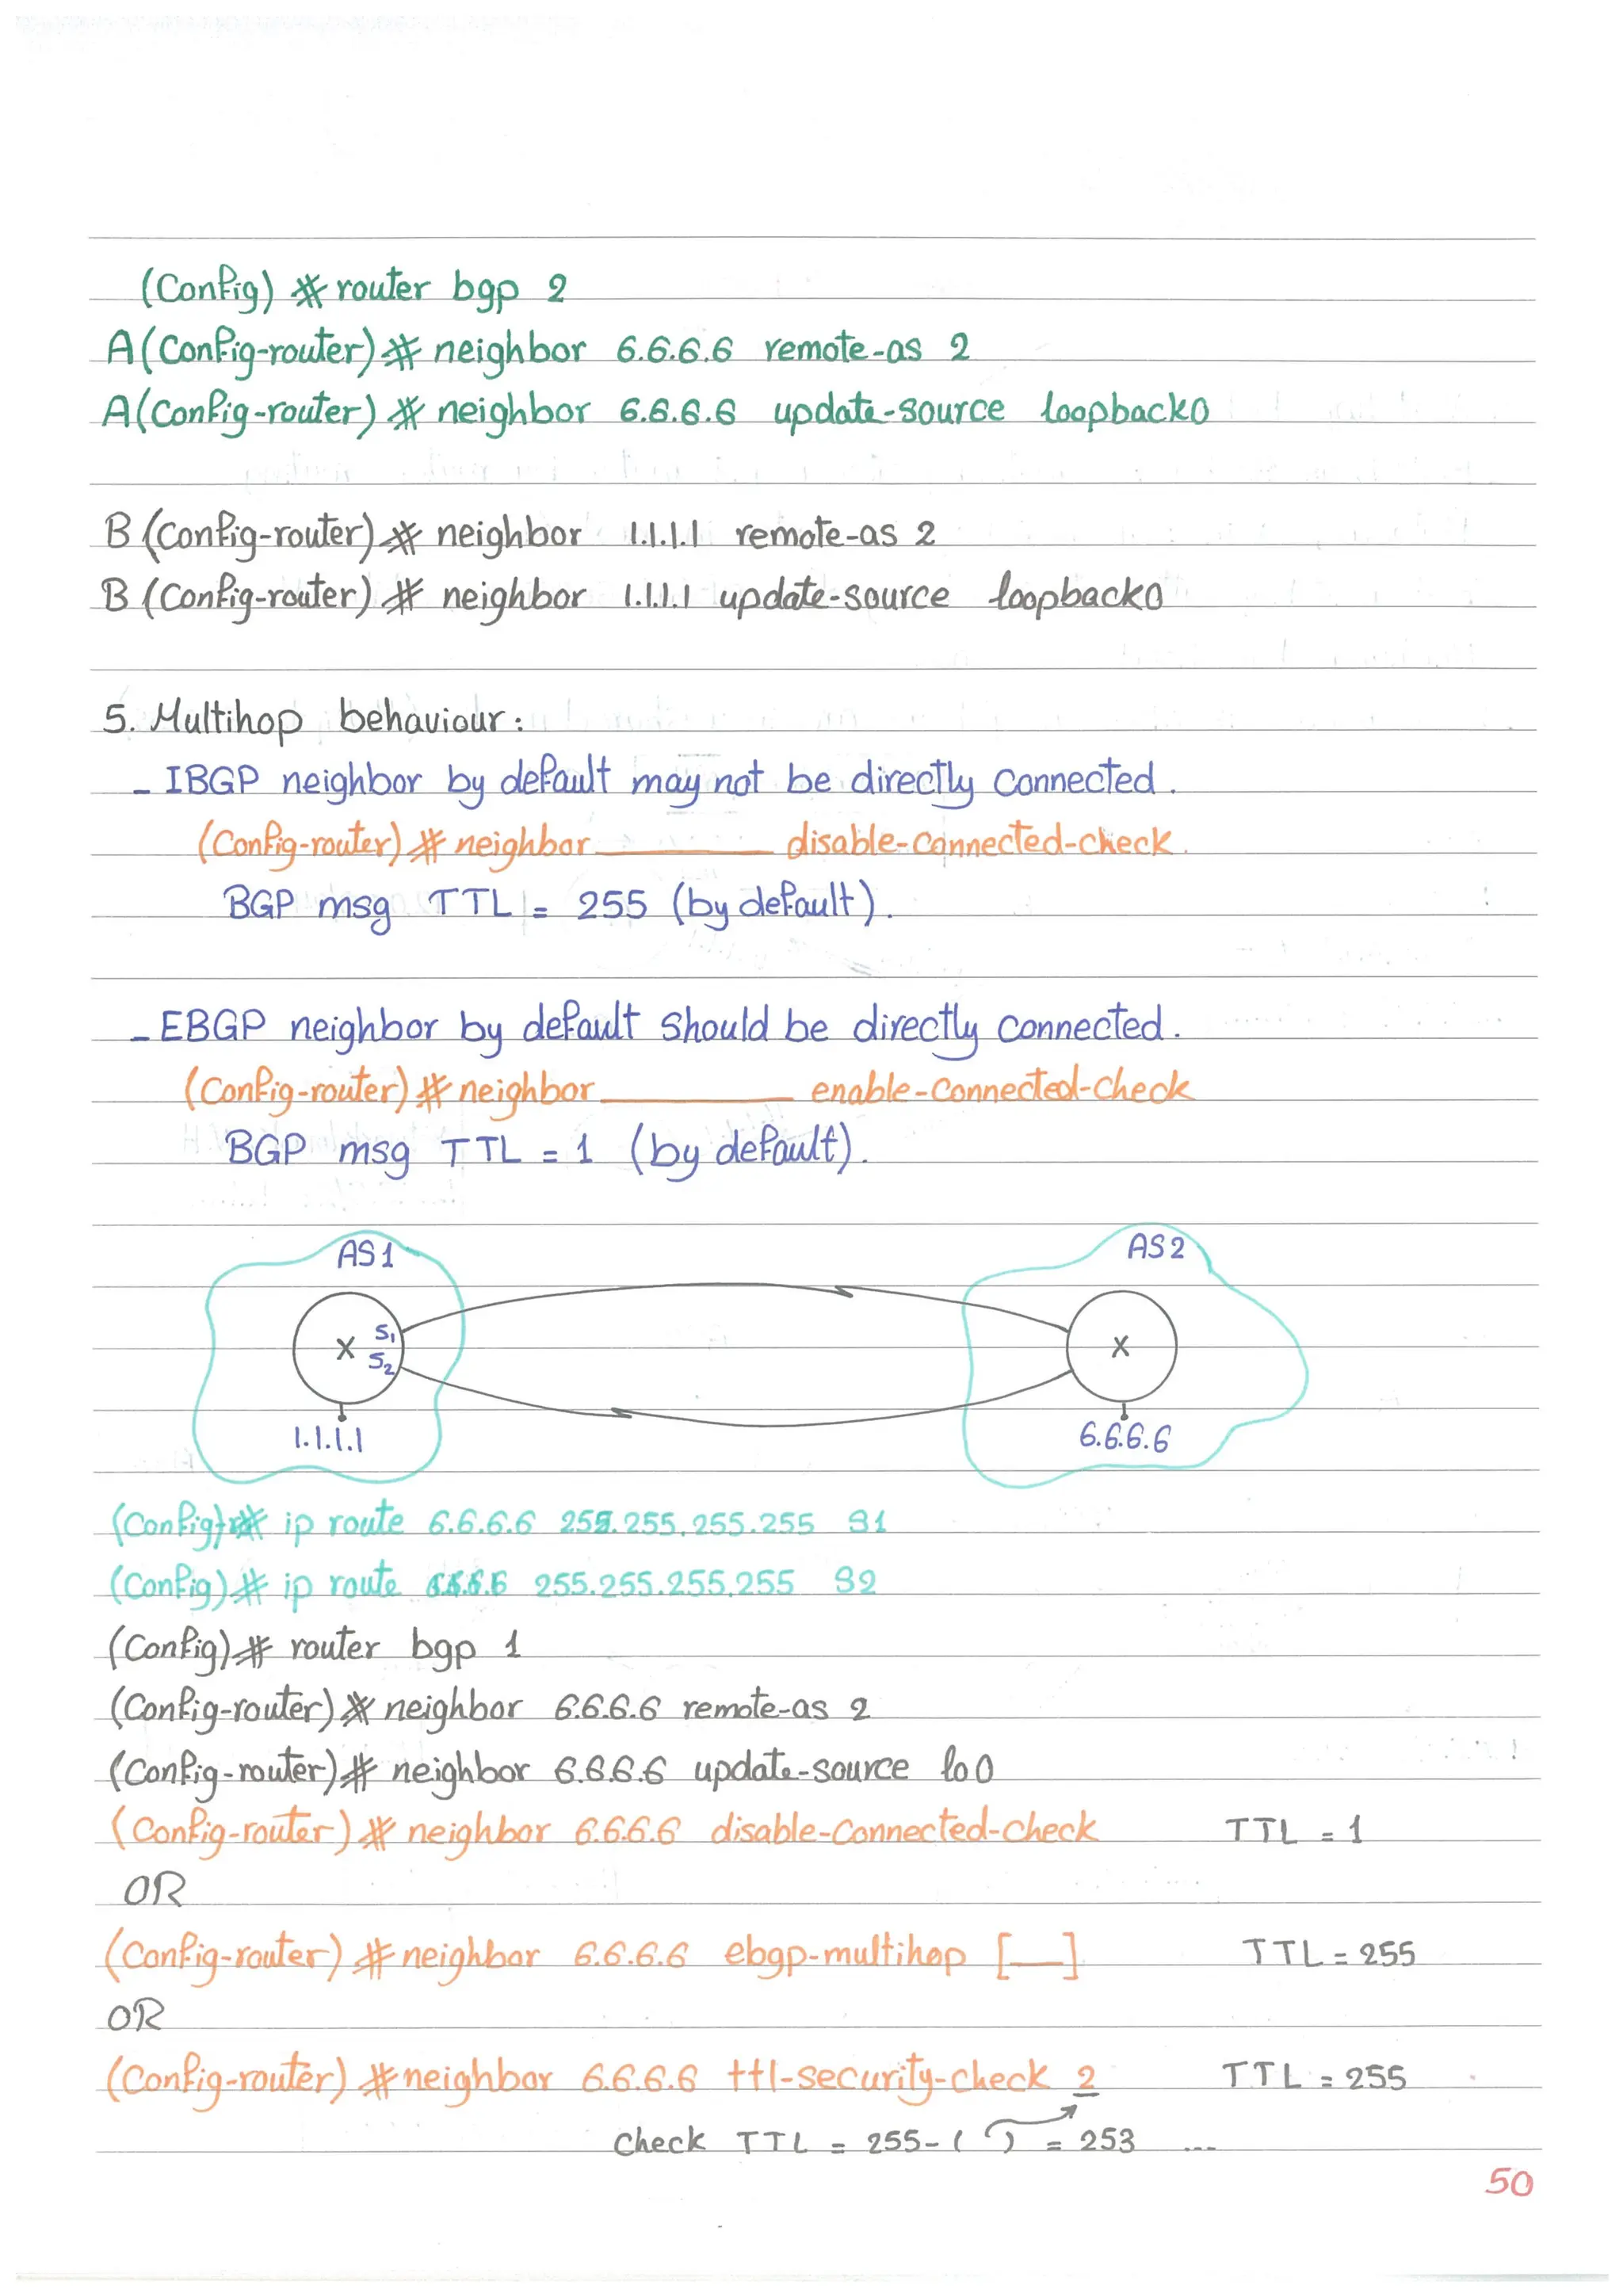 (Config) # router bgp 2
A(Config-router) # neighbor 6.6.6.6 remote-as 2
A(Config-router) # neighbor 6.6.6.6 update-source loopback0
B (Config-router) # neighbor 1.1.1.1 remote-as 2
B (Config-router) # neighbor 1.1.1.1 update-source loopback0
5. Multihop behaviour:
- IBGP neighbor by default may not be directly Connected.
(Config-router) # neighbor ________ disable-Connected-check.
BGP msg TTL = 255 (by default).
- EBGP neighbor by default should be directly Connected.
(Config-router) # neighbor ________ enable-Connected-Check
BGP msg TTL = 1 (by default).
AS1
AS2
X S1
S2
X
1.1.1.1
6.6.6.6
(Config)# ip route 6.6.6.6 255.255.255.255 S1
(Config) # ip route 6.6.6.6 255.255.255.255 S2
(Config) # router bgp 1
(Config-router) # neighbor 6.6.6.6 remote-as 2
(Config-router) # neighbor 6.6.6.6 update-source lo0
(Config-router) # neighbor 6.6.6.6 disable-Connected-Check TTL = 1
OR
(Config-router) # neighbor 6.6.6.6 ebgp-multihop [__] TTL = 255
OR
(Config-router) # neighbor 6.6.6.6 ttl-security-check 2 TTL = 255
Check TTL = 255-( ) = 253 ...
50